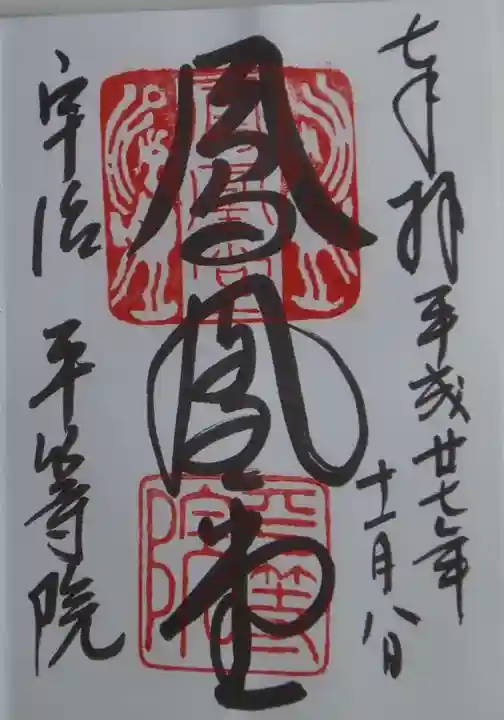 奉拝
平成廿七年
十一月八日
鳳凰堂
宇治 平等院
鳳凰堂
平等院